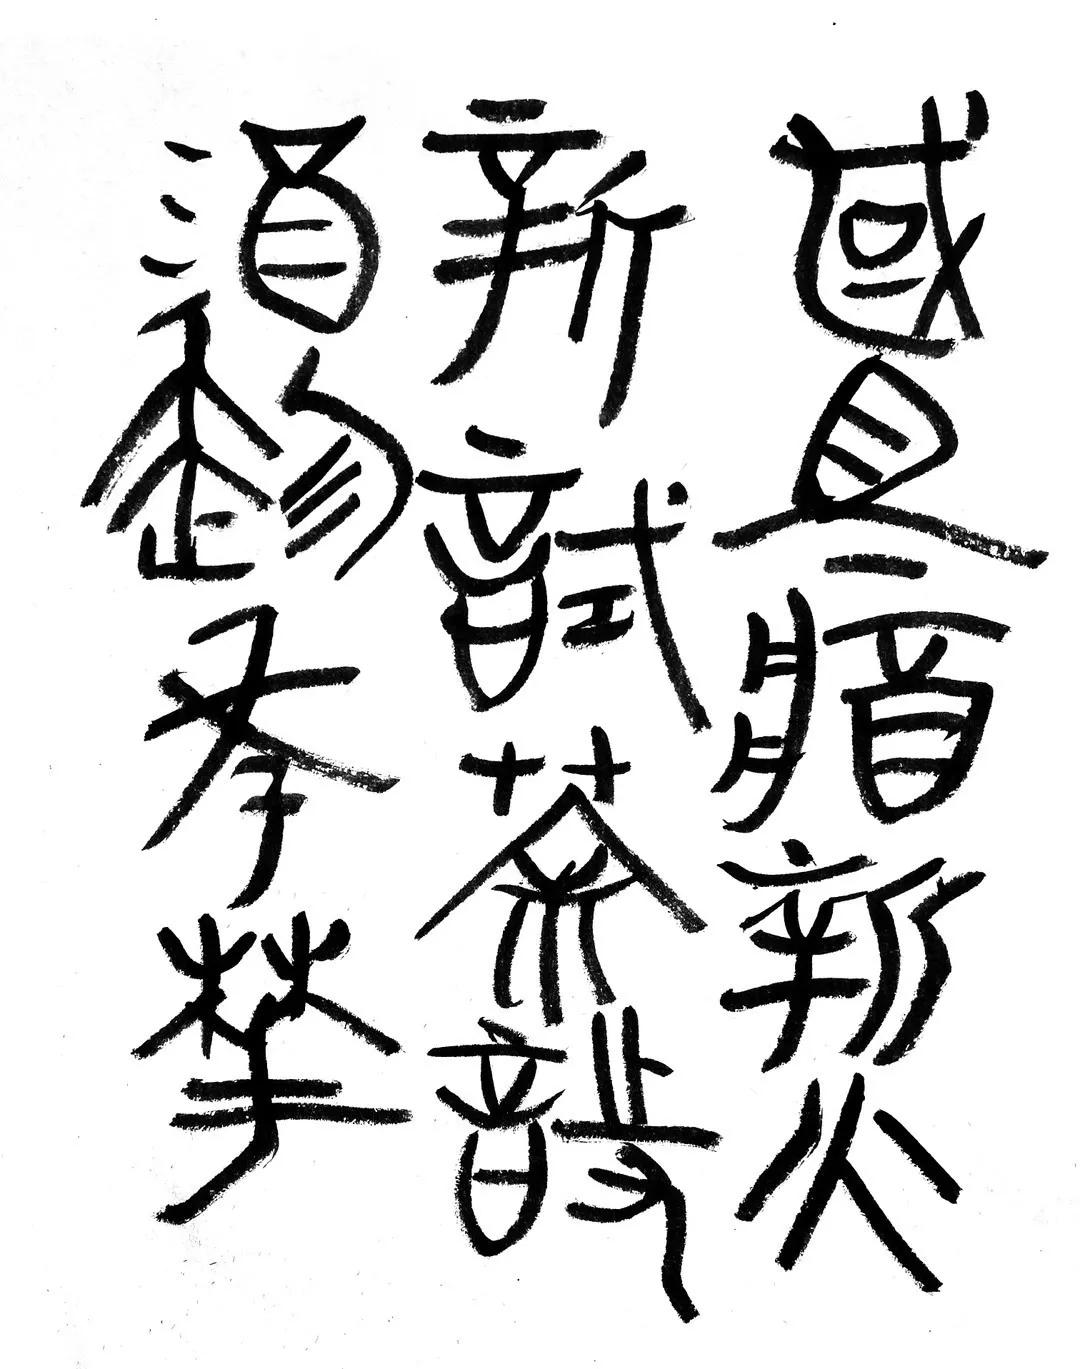 國且將新火
新試茶詩
酒趁年華